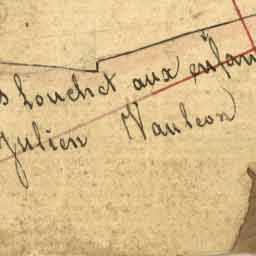 s Louchet aux enfan
Julien Vauleon